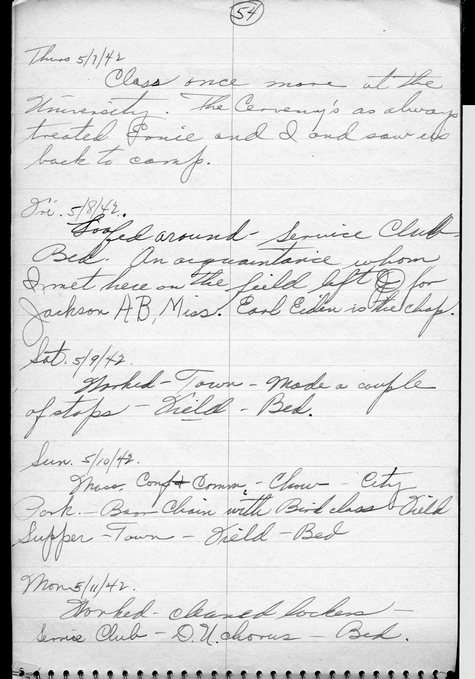 54
Thurs 5/7/42
Class once more at the
University. The Cerveny's as always
treated Ernie and I and saw us
back to camp.
Fri. 5/8/42.
Loafed around - Service Club -
Bed. An acquaintance whom
I met here on the field left for
Jackson AB, Miss. Earl Eiden is the chap.
Sat. 5/9/42.
Worked - Town - Made a couple
of stops - Field - Bed.
Sun. 5/10/42.
Mass, Conf & Comm, - Chow - City
Park - with Bird class - Field
Supper - Town - Field - Bed
Mon 5/11/42.
Worked - cleaned lockers -
Service Club - D.U. chorus - Bed.